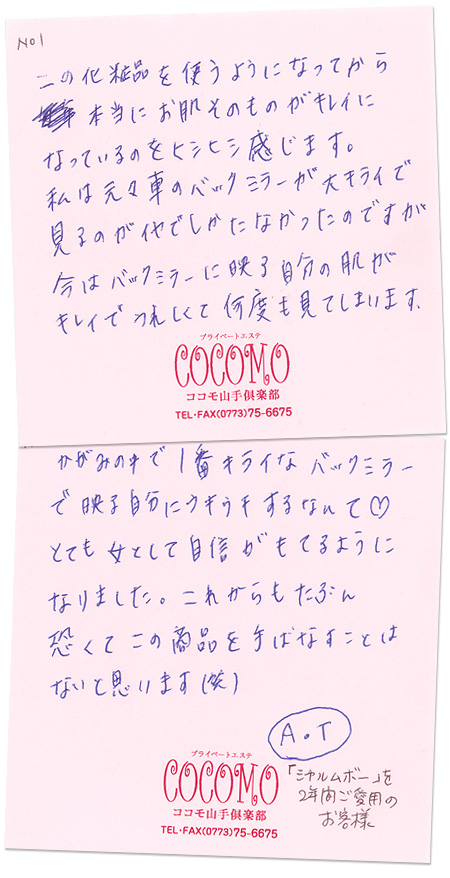 NO1
この化粧品を使うようになってから
本当にお肌そのものがキレイに
なっているのをヒシヒシ感じます。
私は元々車のバックミラーが大キライで
見るのがイヤでしかたなかったのですが
今はバックミラーに映る自分の肌が
キレイでうれしくて何度も見てしまいます。
プライベートエステ
COCOMO
ココモ山手倶楽部
TEL・FAX(0773)75-6675
かがみの中で1番キライなバックミラー
で映る自分にウキウキするなんて♡
とても女として自信がもてるように
なりました。これからもたぶん
恐くてこの商品を手ばなすことは
ないと思います(笑)
A.T
プライベートエステ
COCOMO
ココモ山手倶楽部
TEL・FAX(0773)75-6675
「ミャルムボー」を
2年間ご愛用の
お客様